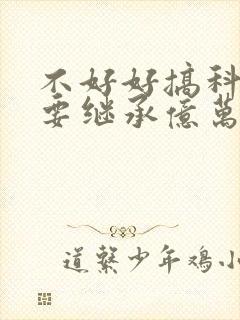 不好好搞科
要继承億萬
道聲少年鸡小